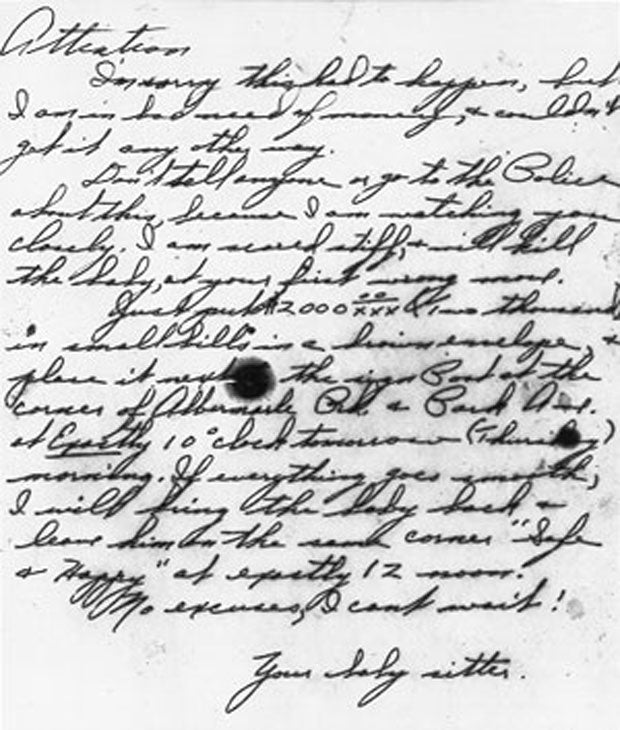 Attention
I'm sorry this had to happen, but
I am in bad need of money, & couldn't
get it any other way.
Don't tell anyone or go to the Police
about this, because I am watching you
closely. I am scared stiff, & will kill
the baby, at your first wrong move.
Just put $2000 00/xxx (Two thousand)
in small bills in a brown envelope, &
place it next the sign Post at the
corner of Albemarle Rd. & Park Ave.
at Exactly 10 o'clock tomorrow (Thursday)
morning. If everything goes smooth,
I will bring the baby back &
leave him on the same corner "Safe
& Happy" at exactly 12 noon.
No excuses, I cant wait!
Your baby sitter.